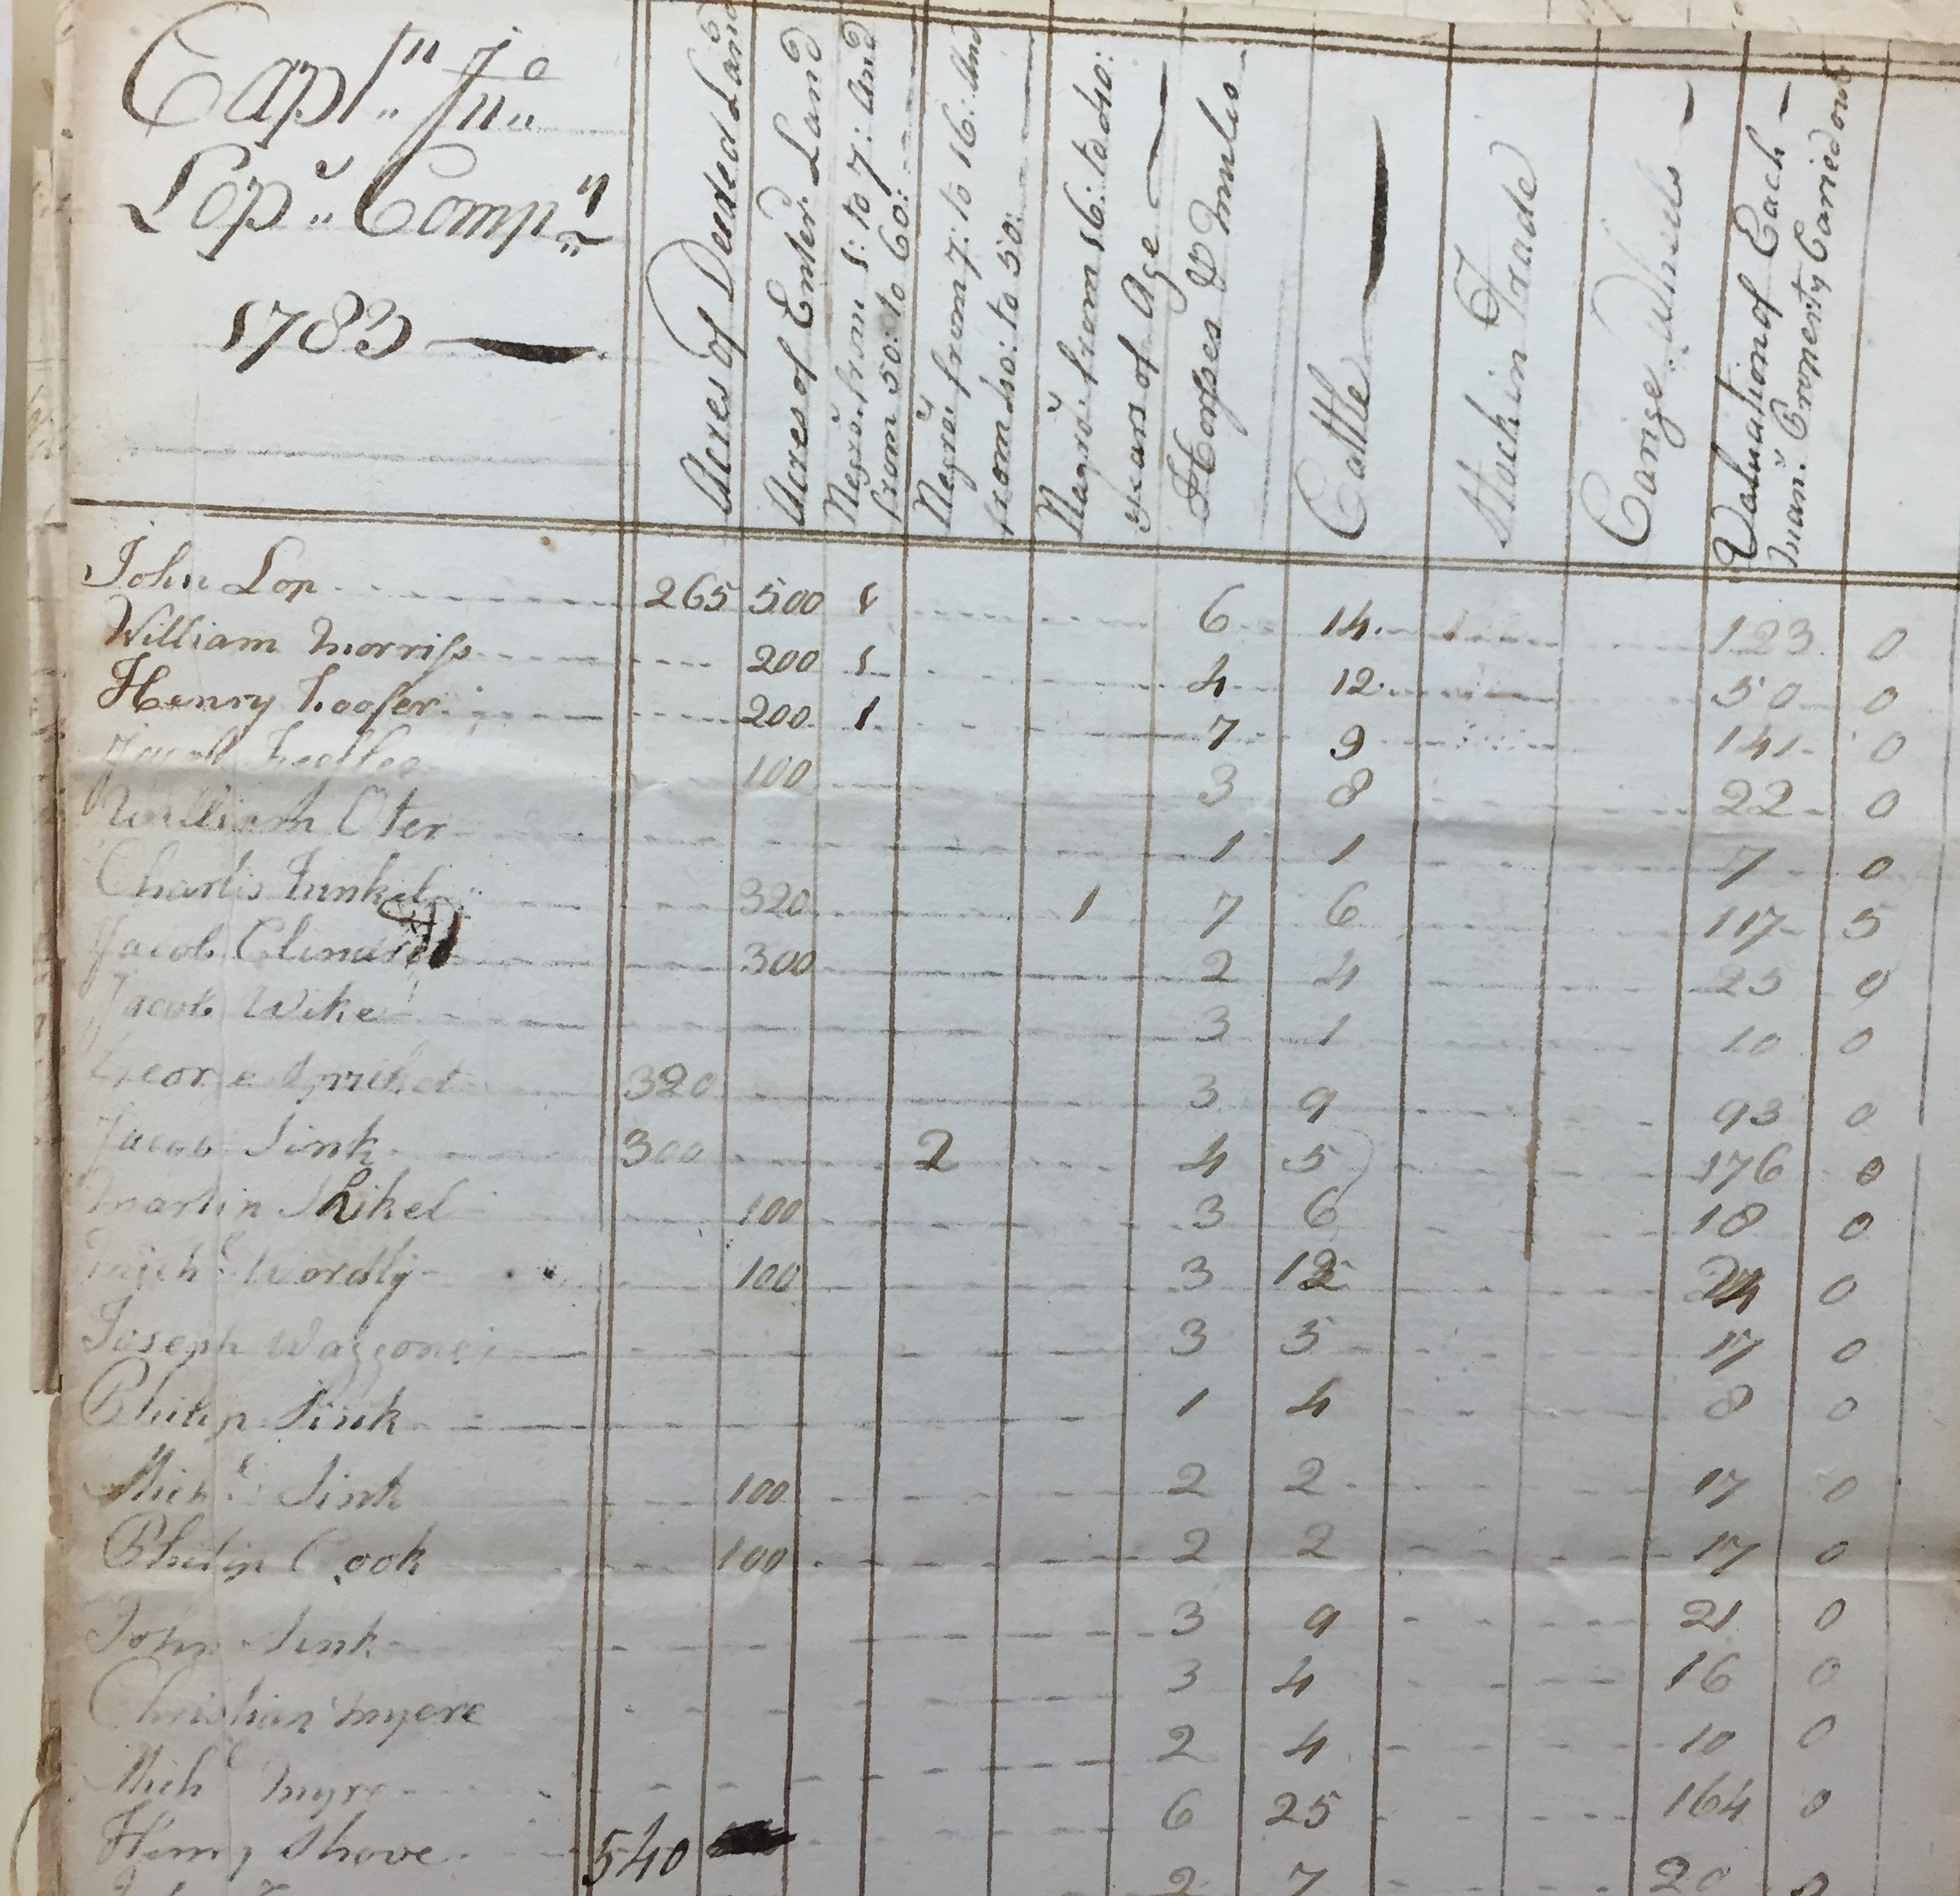 Capt.ⁿ Jnº
Lopˢ Compʸ
1783
Acres of Deeded Land
Acres of Enter. Land
Negroˢ from 1: to 7: And
from 50: to 60:
Negroˢ from 7: to 16: And
from 40: to 50:
Negroˢ from 16: to 40:
years of Age
Horses & Muls
Cattle
Stock in Trade
Carige Wheels
Valuation of Each
mans Property Caried out
John Lop 265 500 1 6 14 123 0
William Morriss 200 1 4 12 50 0
Henry 200 1 7 9 141 0
100 3 8 22 0
William Oter 1 1 7 0
Charlis 320 1 7 6 117 5
Jacob 300 2 4 25 0
Jacob Wike 3 1 10 0
320 3 9 93 0
Jacob Sink 300 2 4 5 176 0
Martin 100 3 6 18 0
Michˡ Wordly 100 3 12 24 0
Joseph Waggoner 3 5 17 0
Philip Sink 1 4 8 0
Michˡ Sink 100 2 2 17 0
Philip Cook 100 2 2 17 0
John Sink 3 9 21 0
Christian Myere 3 4 16 0
Michˡ Myre 2 4 10 0
Henry Shove 540 6 25 164 0
2 7 20 0